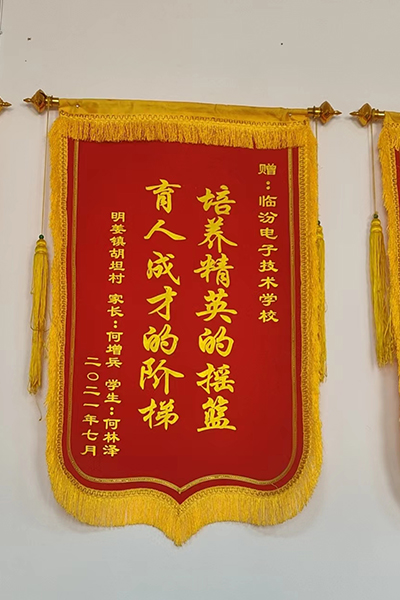 赠：临汾电子技术学校
培养精英的摇篮
育人成才的阶梯
明姜镇胡坦村 家长：何增兵 学生：何林泽
二〇二一年七月